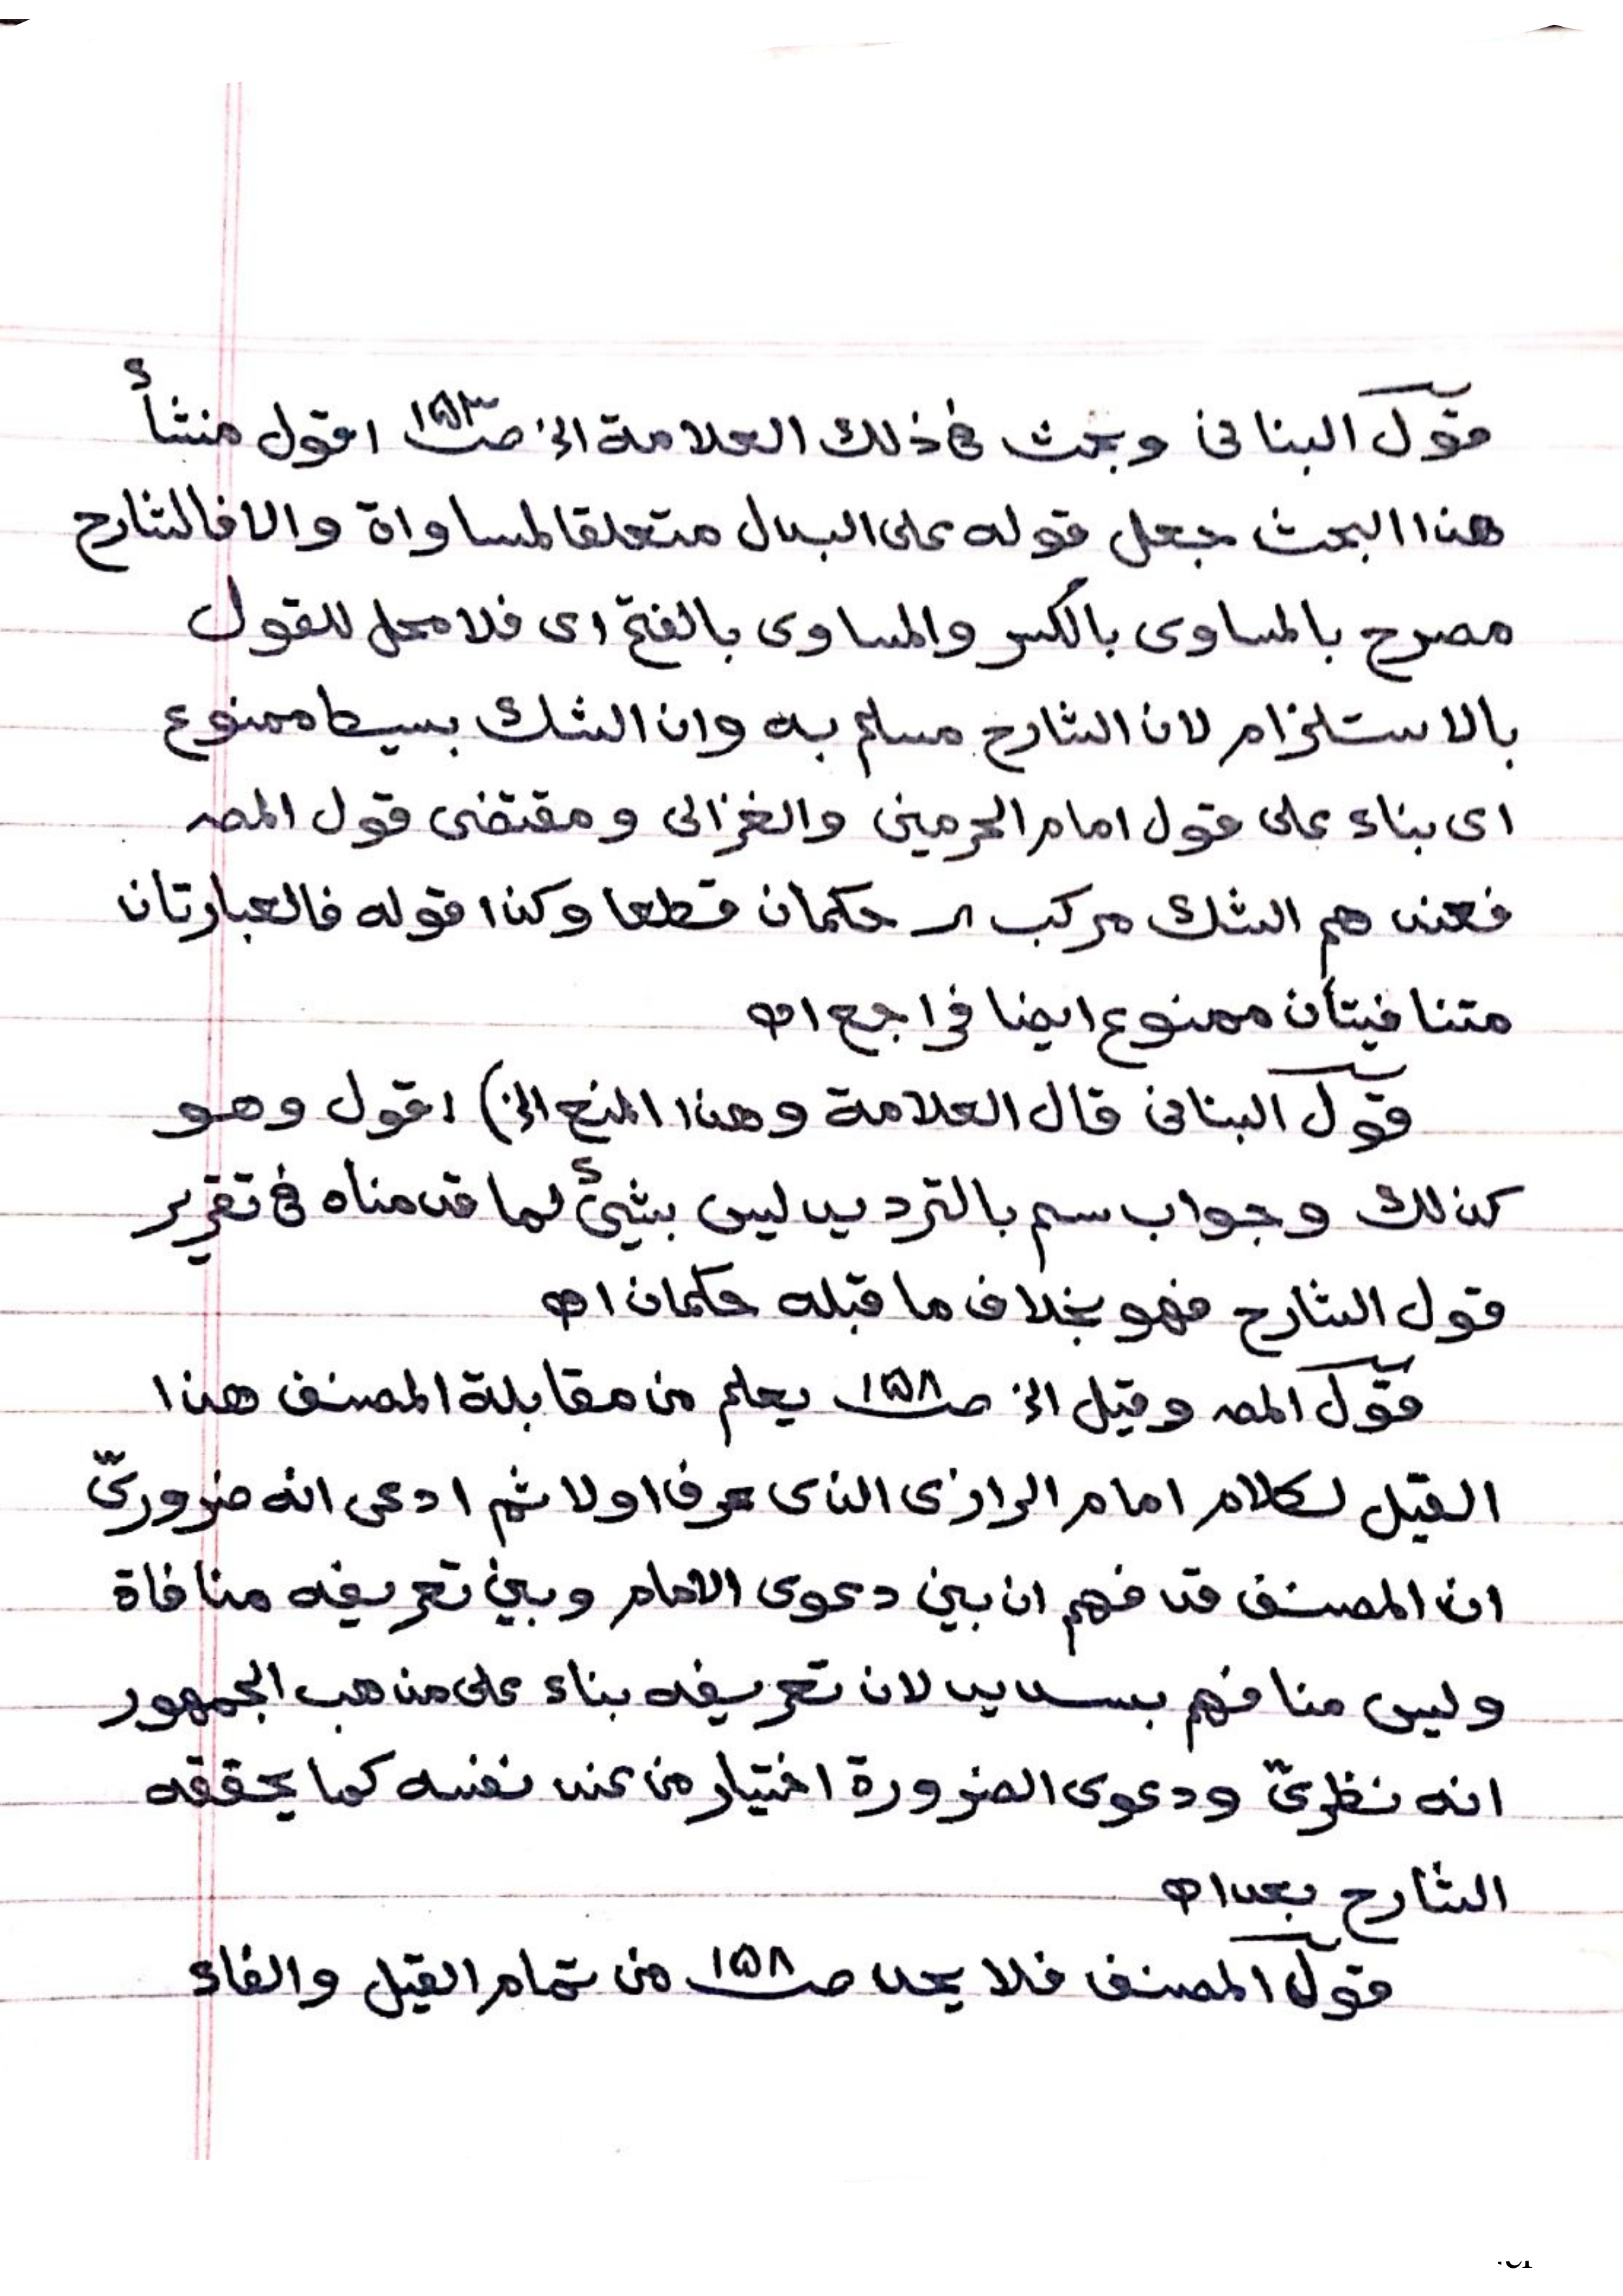 قول البنانى وبحث فى ذلك العلامة الخ صـ ١٥٣ اقول منشأ
هذا البحث جعل قوله على البدل متعلقا لمساواة والا فالشارح
مصرح بالمساوى بالكسر والمساوى بالفتح اى فلا محل للقول
بالاستلزام لان الشارح مسلم به وان الشك بسيط ممنوع
اى بناء على قول امام الحرمين والغزالى ومقتضى قول المصـ
فعندهم الشك مركب حكمان قطعا وكذا قوله فالعبارتان
متنافيتان ممنوع ايضا فراجع اھ
قول البنانى قال العلامة وهذا المنع الخ) اقول وهو
كذلك وجواب سم بالترديد ليس بشئ لما قدمناه فى تقرير
قول الشارح فهو بخلاف ما قبله حكمان اھ
قول المصـ وقيل الخ صـ ١٥٨ يعلم من مقابلة المصنف هذا
القيل لكلام امام الرازى الذى عرف اولا ثم ادعى انه ضرورىّ
ان المصنف قد فهم ان بين دعوى الامام وبين تعريفه منافاة
وليس منافهم بسديد لان تعريفه بناء على مذهب الجمهور
انه نظرىّ ودعوى الضرورة اختيار من عند نفسه كما يحققه
الشارح بعد اھ
قول المصنف فلا يحد صـ ١٥٨ من تمام القيل والفاء